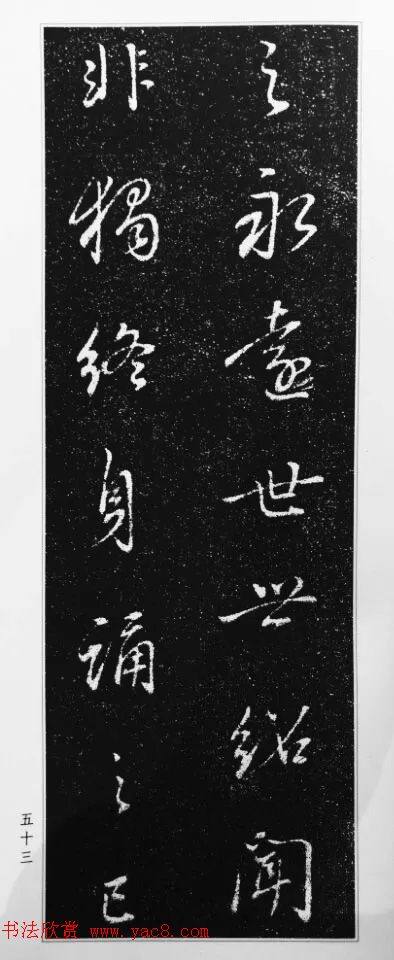 之永遠世世紹聞
非獨終身誦之已
五十三
书法欣赏 www.yac8.com